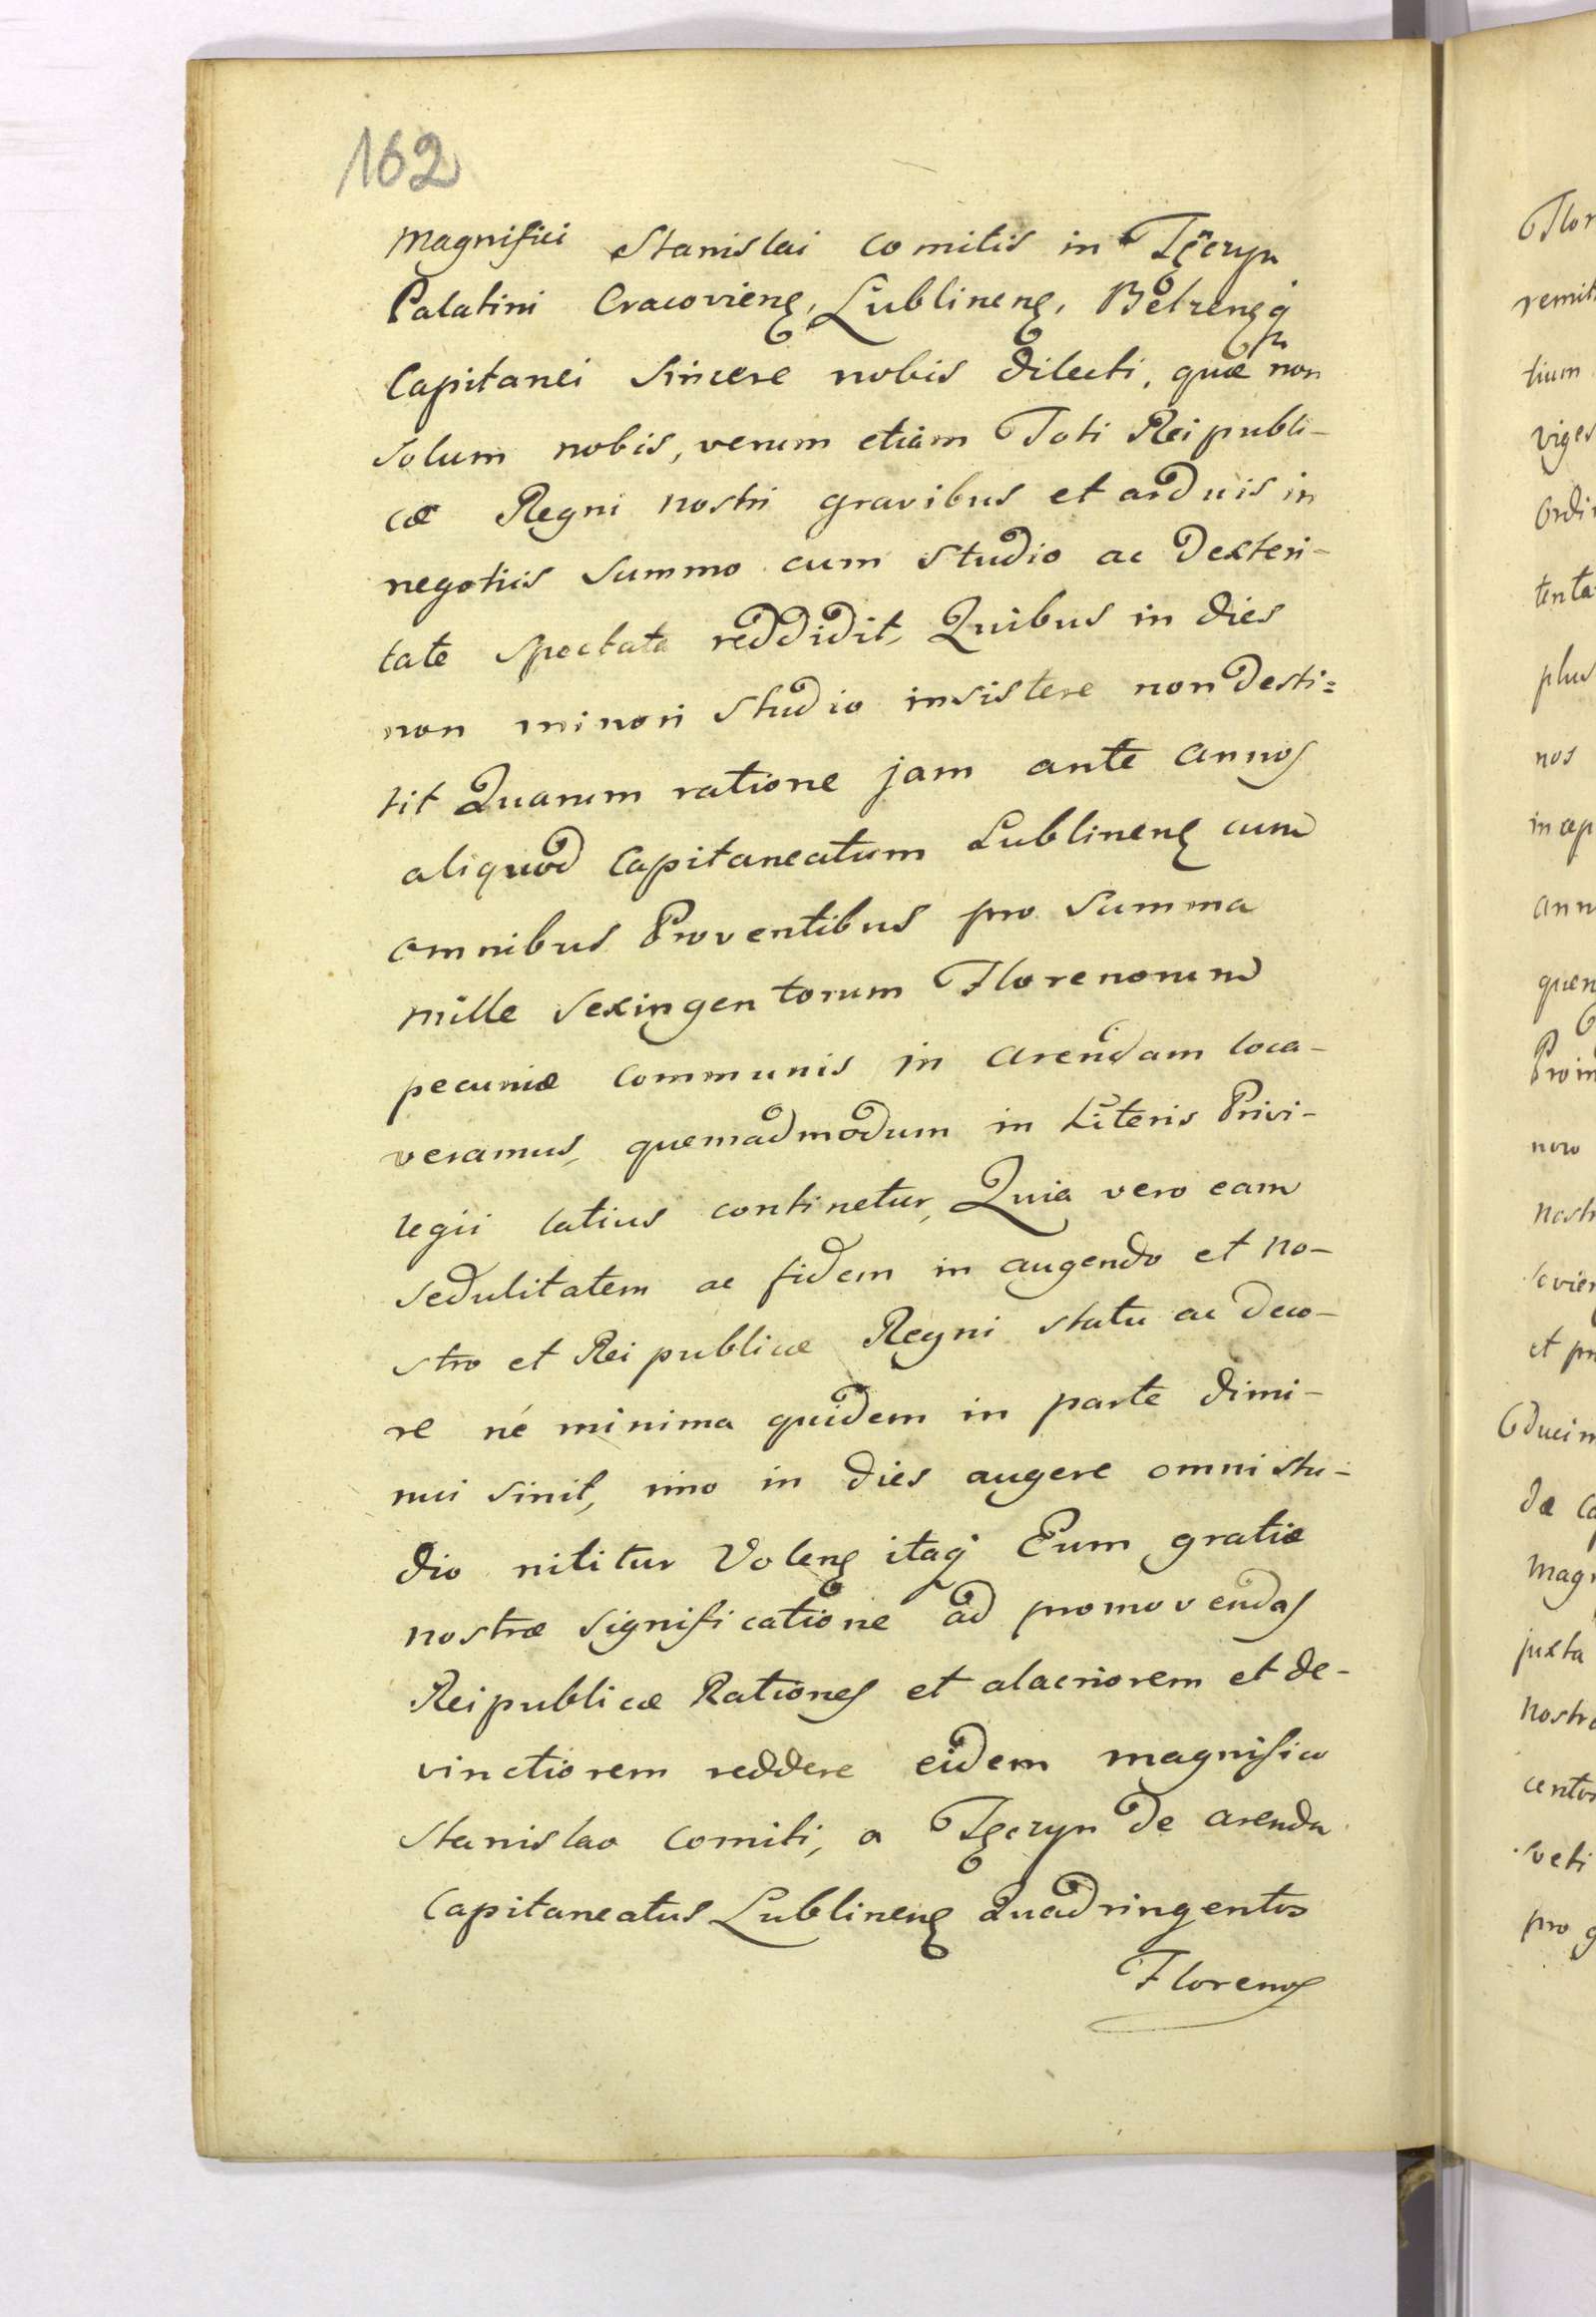 162
Magnifici Stanislai Comitis in Tęczyn
Palatini Cracovienę, Lublinenę, Bełzenę q̃
Capitanei Sincere nobis dilecti, quæ non
solum nobis, verum etiam Toti Reipubli-
cæ Regni nostri gravibus et arduis in
negotiis summo cum studio ac Dexteri-
tate spectata reddidit, Quibus in dies
non minori studio insistere non desti=
tit Quarum ratione jam ante annos
aliquod Capitaneatum Lublinenę cum
omnibus Proventibus pro Summa
mille Sexingentorum Florenorum
pecuniæ communis in arendam loca-
veramus, quemadmodum in Literis Privi-
legii latius continetur, Quia vero eam
sedulitatem ac fidem in augendo et no-
stro et Reipublicæ Regni statu ac deco-
re né minima quidem in parte dimi-
nui sinit, imo in dies augere omni stu-
dio nititur Volenę itaq́ Eum gratiæ
nostræ significatione ad promovendas
Reipublicæ Rationes et alacriorem et de-
vinctiorem reddere eidem magnifico
Stanislao Comiti, a Tęczyn de arenda
Capitaneatus Lublinenę Quadringentos
Florenos
Flor
remit
tium
viges
Ordi
tenta
plus
nos
in ap
ann
quen
Proin
novo
nostr
et pr
da Ca
Magn
juxta
nostr
centos
pro g